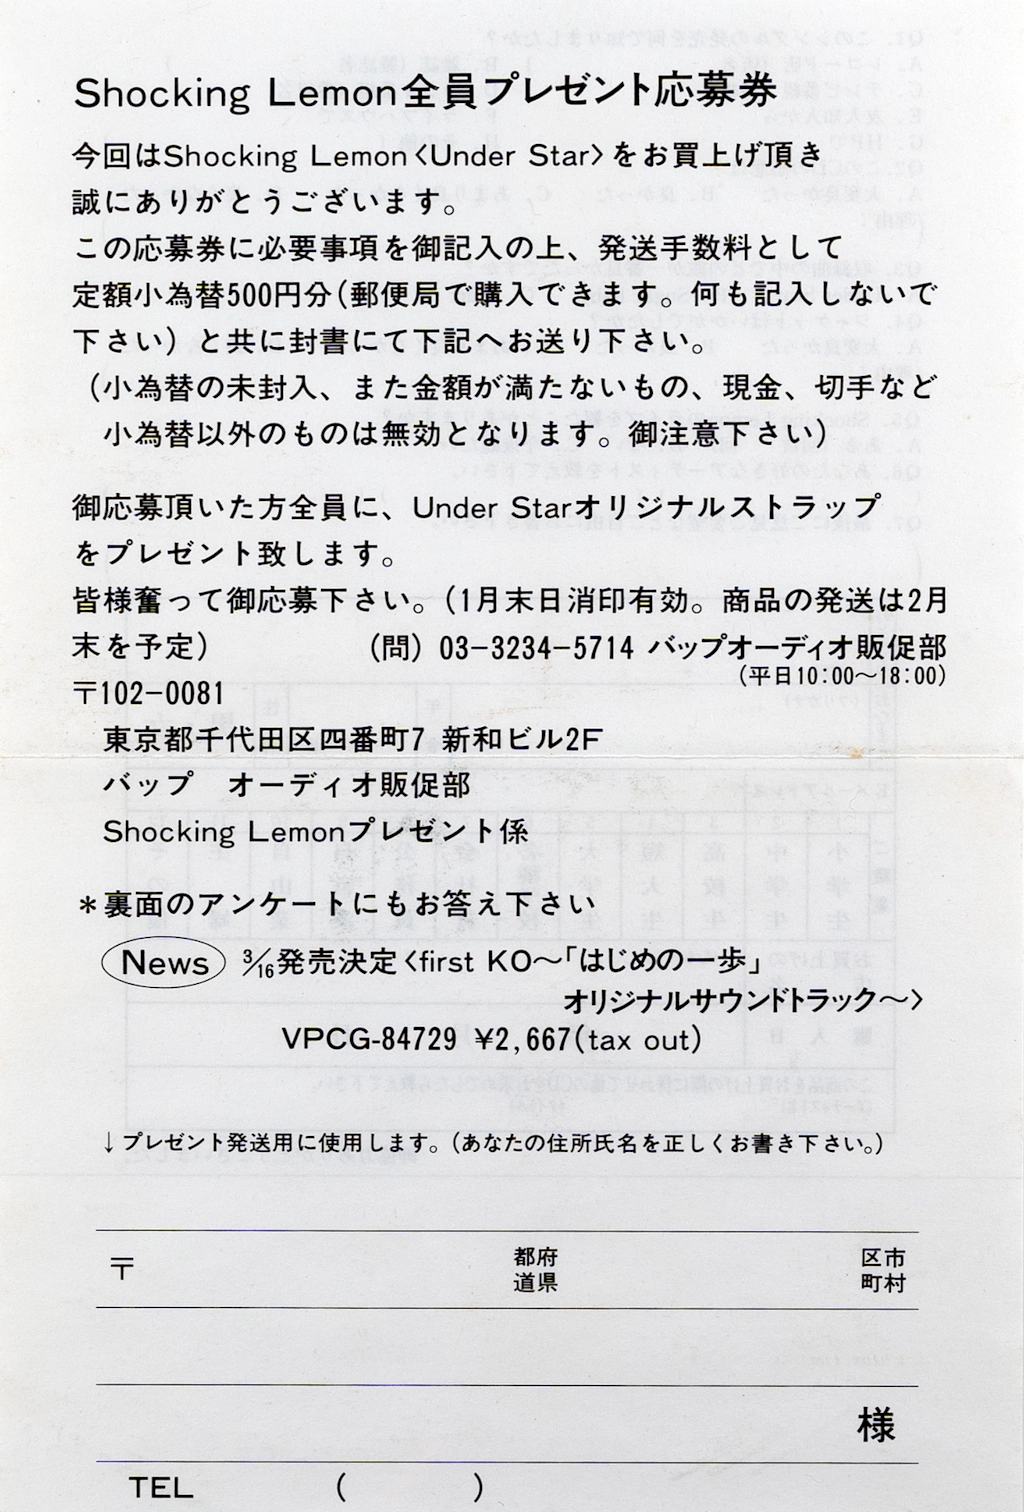 Shocking Lemon全員プレゼント応募券
今回はShocking Lemon〈Under Star〉をお買上げ頂き
誠にありがとうございます。
この応募券に必要事項を御記入の上、発送手数料として
定額小為替500円分(郵便局で購入できます。何も記入しないで
下さい)と共に封書にて下記へお送り下さい。
(小為替の未封入、また金額が満たないもの、現金、切手など
小為替以外のものは無効となります。御注意下さい)
御応募頂いた方全員に、Under Starオリジナルストラップ
をプレゼント致します。
皆様奮って御応募下さい。(1月末日消印有効。商品の発送は2月
末を予定) (問) 03-3234-5714 バップオーディオ販促部
(平日10:00〜18:00)
〒102-0081
東京都千代田区四番町7 新和ビル2F
バップ オーディオ販促部
Shocking Lemonプレゼント係
*裏面のアンケートにもお答え下さい
News 3/16発売決定〈first KO〜「はじめの一歩」
オリジナルサウンドトラック〜〉
VPCG-84729 ¥2,667(tax out)
↓プレゼント発送用に使用します。(あなたの住所氏名を正しくお書き下さい。)
〒 都府 区市
道県 町村
様
TEL ( )